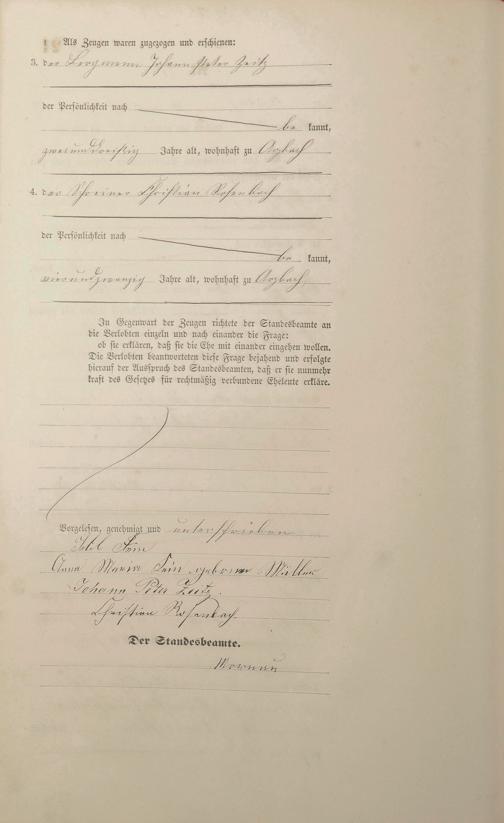 Als Zeugen waren zugezogen und erschienen:
3. der Bergmann Johann Peter Zeitz
der Persönlichkeit nach
be kannt,
zweiunddreißig Jahre alt, wohnhaft zu Arzbach
4. der Schreiner Christian Rosenbach
der Persönlichkeit nach
be kannt,
vierundzwanzig Jahre alt, wohnhaft zu Arzbach
In Gegenwart der Zeugen richtete der Standesbeamte an
die Verlobten einzeln und nach einander die Frage:
ob sie erklären, daß sie die Ehe mit einander eingehen wollen.
Die Verlobten beantworteten diese Frage bejahend und erfolgte
hierauf der Ausspruch des Standesbeamten, daß er sie nunmehr
kraft des Gesetzes für rechtmäßig verbundene Eheleute erkläre.
Vorgelesen, genehmigt und unterschrieben
Anna Maria geborene Müller
Johann Peter Zeitz.
Christian Rosenbach
Der Standesbeamte.